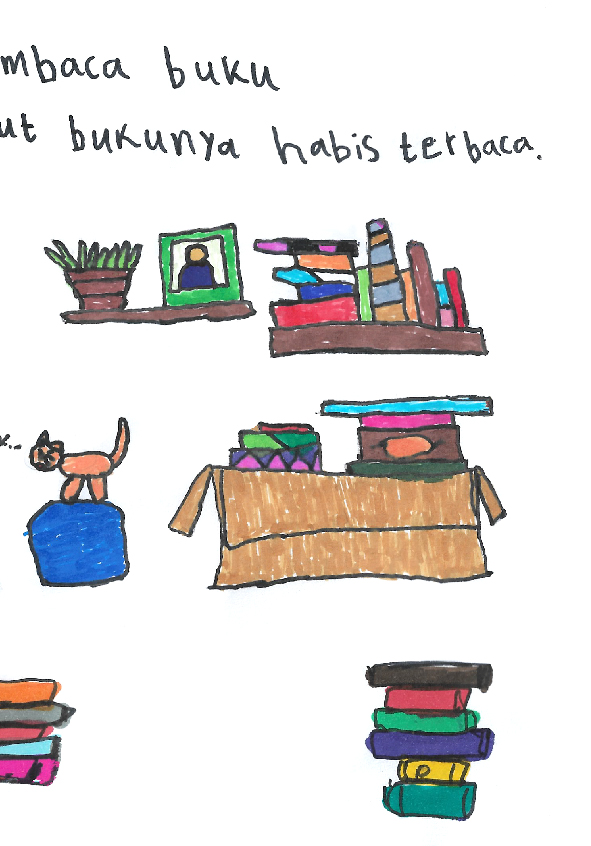 mbaca buku
ut bukunya habis terbaca.